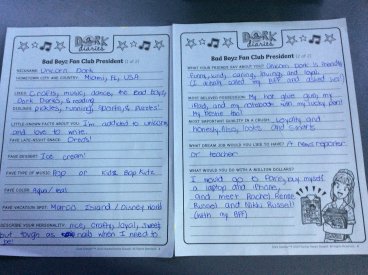 DORK
diaries
Bad Boyz Fan Club President (1 of 2)
NICKNAME: Unicorn Dork
HOMETOWN CITY AND COUNTRY: Miami, Fl, USA
LIKES: Crafty, music, dance, the Bad Boyz,
Dork Diaries, & reading
DISLIKES: pickles, running, sports, & puzzles!
LITTLE-KNOWN FACTS ABOUT YOU: I'm addicted to unicorns
and love to write.
FAVE LATE-NIGHT SNACK: Oreos!
FAVE DESSERT: Ice cream!
FAVE TYPE OF MUSIC: Pop or Kidz Bop Kidz
FAVE COLOR: Aqua/teal
FAVE VACATION SPOT: Marco Island/Disney world
DESCRIBE YOUR PERSONALITY: nice, crafty, loyal, sweet,
but tough as nails when I need to
be!
DORK
diaries
Bad Boyz Fan Club President (2 of 2)
WHAT YOUR FRIENDS SAY ABOUT YOU? Unicorn Dork is friendly,
funny, kind, caring, loving, and loyal.
(I actually called my BFF and asked her)
MOST BELOVED POSSESSION: My hot glue gun, my
iPod, and my notebook with my lucky pen!
My bestie too!
MOST IMPORTANT QUALITY IN A CRUSH: Loyalty and
honesty. Also, looks and smarts
WHAT DREAM JOB WOULD YOU LIKE TO HAVE? A news reporter
or teacher
WHAT WOULD YOU DO WITH A MILLION DOLLARS?
I would go to Paris, buy myself
a laptop and phone,
and meet Rachel Renee
Russell and Nikki Russell!
(with my BFF)